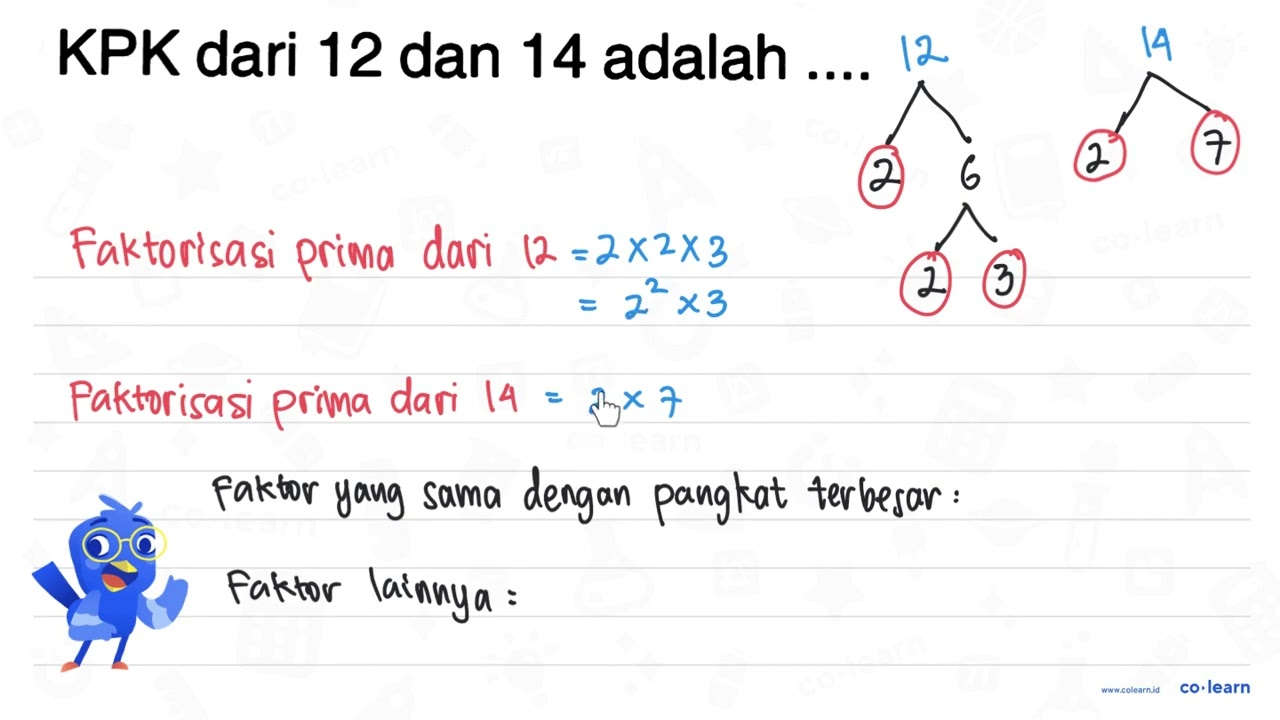 KPK dari 12 dan 14 adalah ....
12
14
2
6
2
7
2
3
Faktorisasi prima dari 12 = 2 x 2 x 3
= 2² x 3
Faktorisasi prima dari 14 = 2 x 7
Faktor yang sama dengan pangkat terbesar :
Faktor lainnya :
www.colearn.id
co·learn